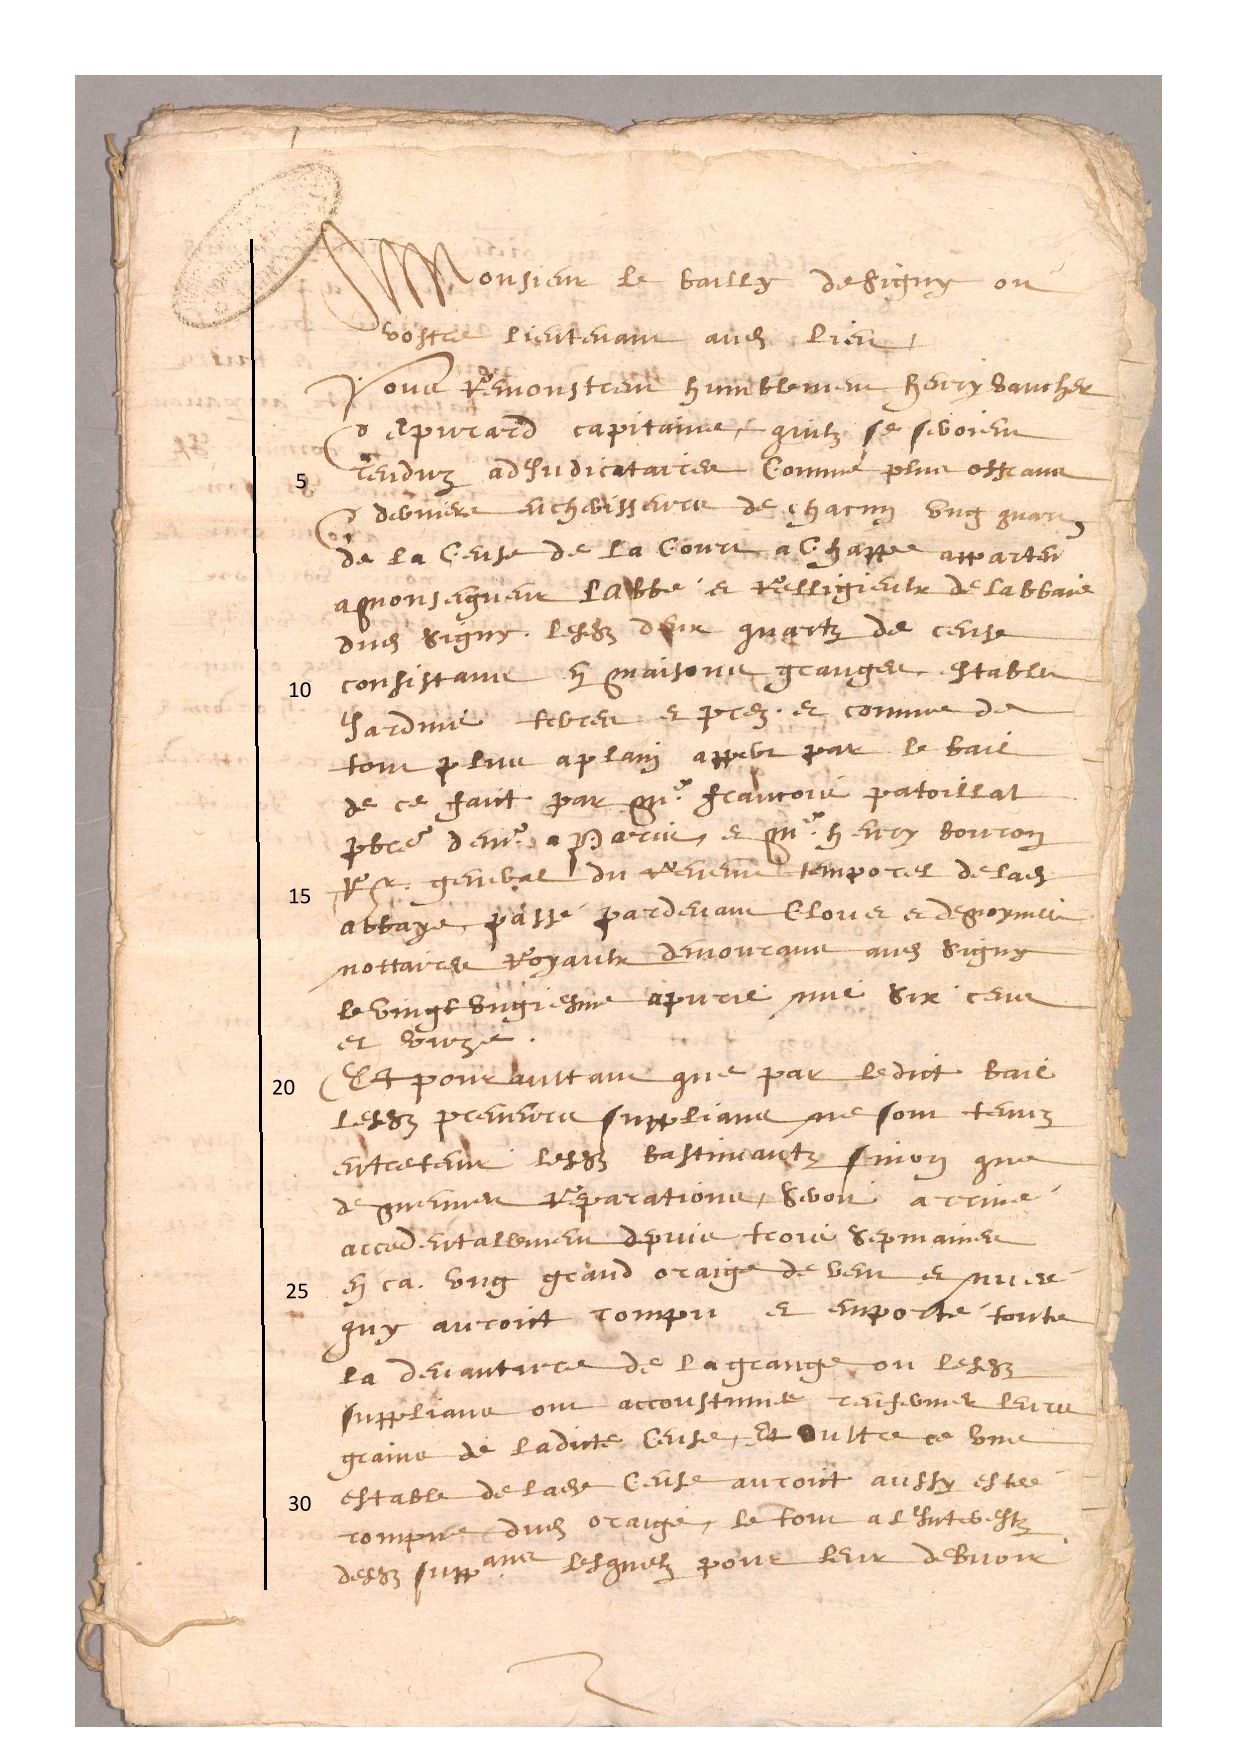 Monsieur le bailly de Signy ou
vostre lieutenant aud lieu,
Vous Remonstrent humblement Henry Saucher
capitaine, quilz se seroient
5 renduz adjudicataires Comme plus offrans
& derniers encherisseurs de chacun ung quart
de la Cense de la Court a Chappe apparten
a monseigneur Labbé et Relligieulx de labbaie
dud Signy. lesdz deux quartz de cense
10 consistans en maisons granges, estables
Jardins terres et prez. et comme de
tout plus aplain appert par le bail
de ce faict par Mr. francois patoillat
pbre demt. a Paris, et Mr. henry
15 Rr. general du revenu temporel de lad
abbaye, passé pardevant Cloue et
nottaires Royaulx demourans aud Signy
le vingt ungiesme apvril mil six cens
et unze.
20 Et pour aultant que par ledict bail
lesdz preneurs supplians ne sont tenuz
entretenir lesdz bastimantz sinon que
de menues Réparations, Seroit arrivé
accidentalement depuis trois sepmaines
25 en ca. ung grand oraige de vent et
quy auroit rompu et emporté toute
la devanture de la grange ou lesdz
supplians ont accoustumé renfermer leurs
grains de ladicte Cense, Et oultre ce une
30 estable de lade Cense auroit aussy estée
rompue dud oraige, le tout a l'Interestz
desdz suppans lesquelz pour leur debvoir